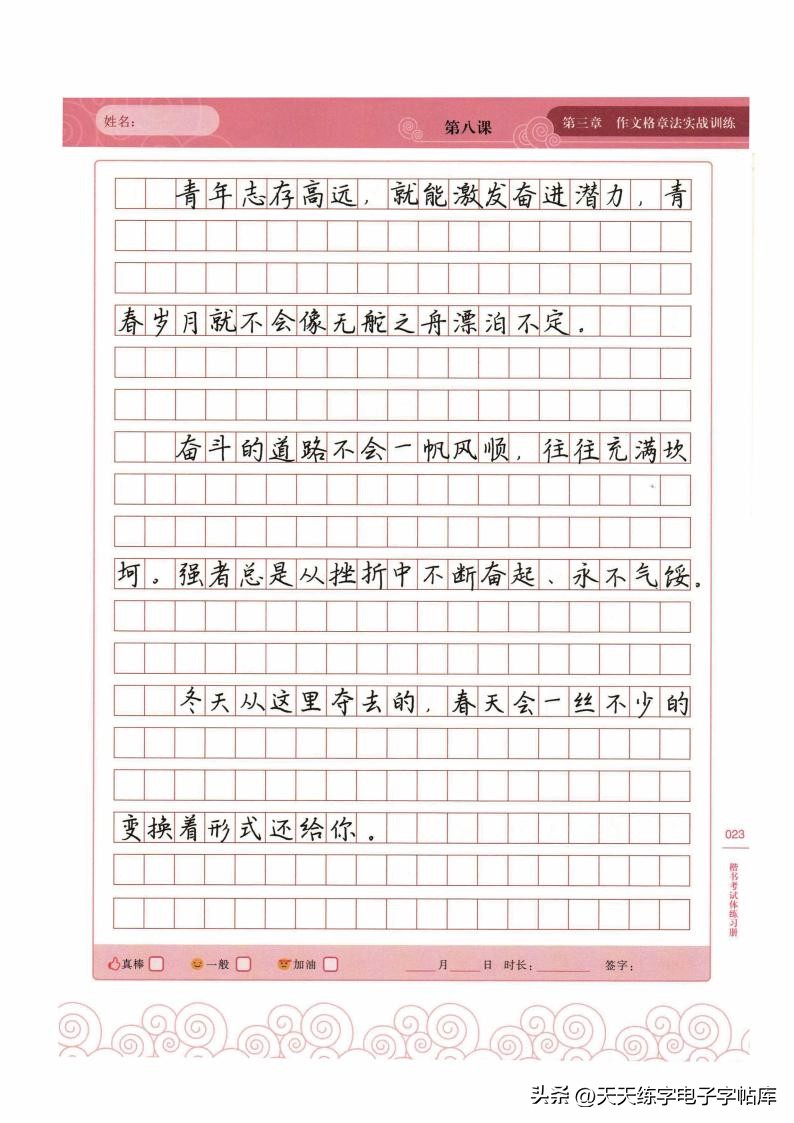 姓名：
第八课
第三章 作文格章法实战训练
青年志存高远，就能激发奋进潜力，青
春岁月就不会像无舵之舟漂泊不定。
奋斗的道路不会一帆风顺，往往充满坎
坷。强者总是从挫折中不断奋起、永不气馁。
冬天从这里夺去的，春天会一丝不少的
变换着形式还给你。
023
楷书考试体练习册
真棒 一般 加油 月 日 时长： 签字：
头条 @天天练字电子字帖库